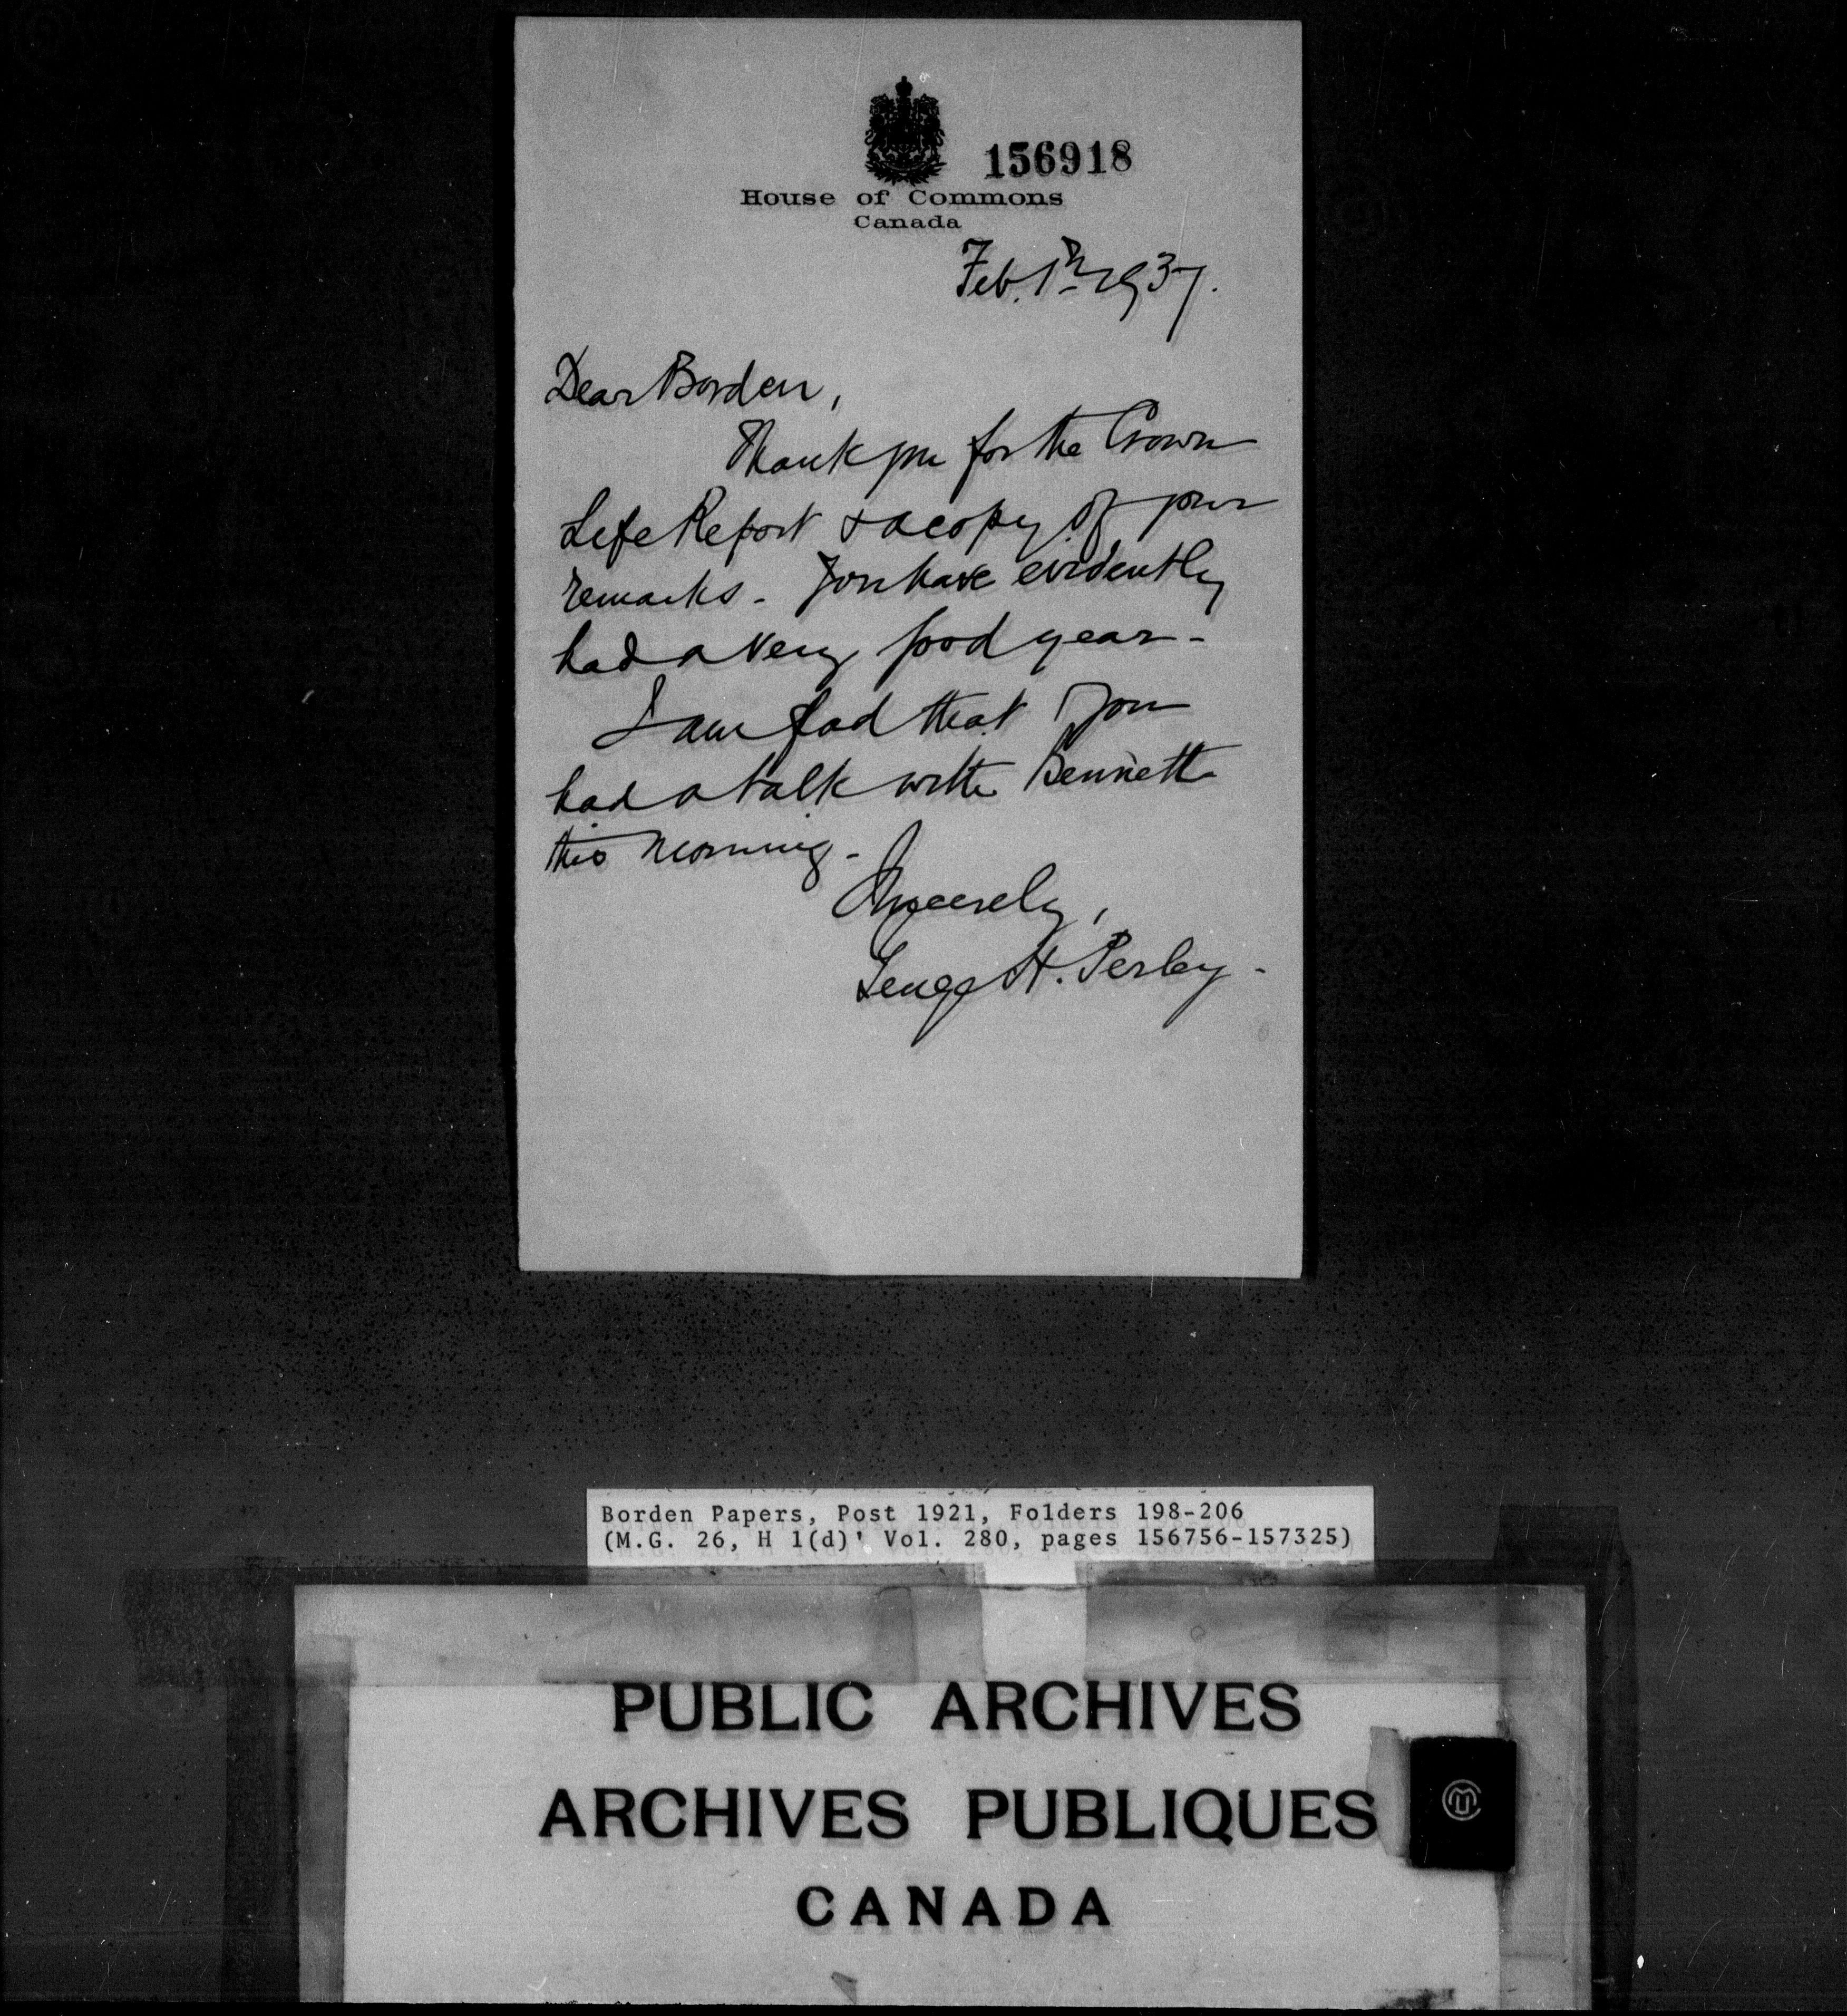 156918
House of Commons
Canada
Feb. 1st 1937.
Dear Borden,
Thank you for the Crown
Life Report & a copy of your
remarks - You have evidently
had a very good year -
I am glad that you
had a talk with Bennett
this morning -
Sincerely,
George H. Perley -
Borden Papers, Post 1921, Folders 198-206
(M.G. 26, H 1(d)' Vol. 280, pages 156756-157325)
PUBLIC ARCHIVES
ARCHIVES PUBLIQUES
CANADA